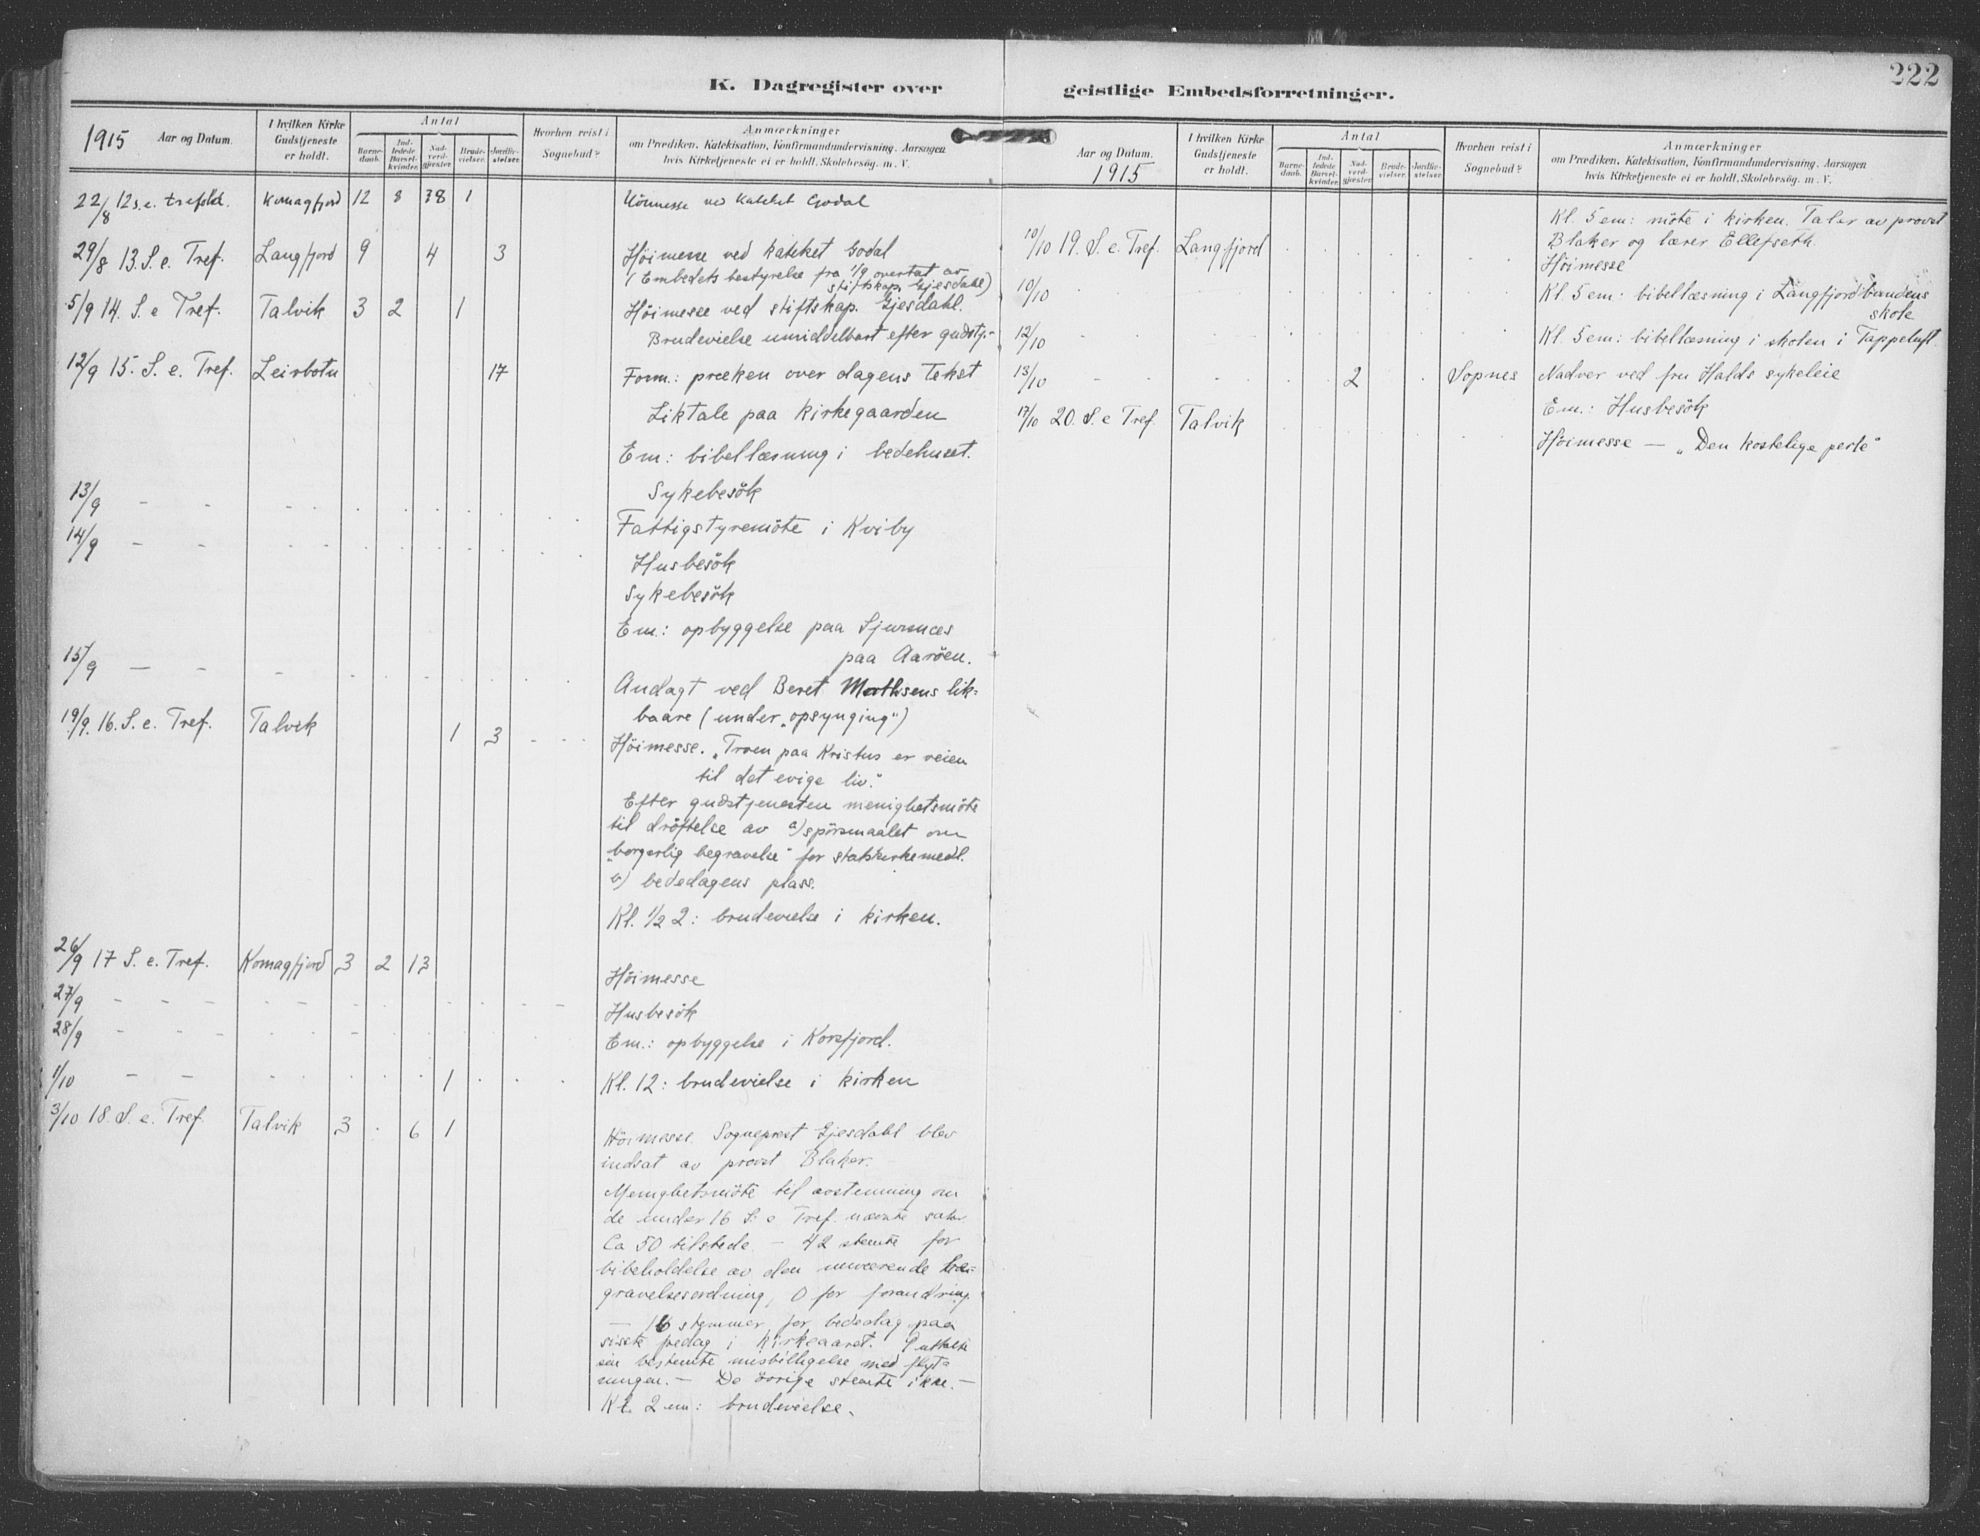 222
K. Dagregister over
1915 Aar og Datum.
I hvilken Kirke Gudstjeneste er holdt.
Antal
Barne-daab.
Ind-ledede Barsel-kvinder.
Nad-verd-gjæster.
Brude-vielser.
Jordfæ-stelser.
Hvorhen reist i Sognebud?
Anmærkninger
om Prædiken, Katekisation, Konfirmandundervisning, Aarsagen
hvis Kirketjeneste ei er holdt, Skolebesøg. m. V.
22/8 12 s. e. trefold. Komagfjord 12 8 38 1 ved kateket Godal
29/8 13. S. e. Tref. Langfjord 9 4 3 Höimesse ved kateket Godal
(Embedets bestyrelse fra 1/9 overtat av
stiftskap. Gjesdahl)
5/9 14. S. e Tref. Talvik 3 2 1 Höimesse ved stiftskap. Gjesdahl.
Brudevielse umiddelbart efter gudstj.-
12/9 15. S. e. Tref. Leirbotn 17 Form.: præken over dagens tekst
Liktale paa kirkegaarden
Em: bibellæsning i bedehuset.
13/9 - - Sykebesök
14/9 - - Fattigstyremöte i Kviby
Husbesök
Sykebesök
Em.: opbyggelse paa
paa Aaröen.
15/9 - - Andagt ved Beret Mathisens lik-
baare (under "opsynging")
19/9. 16. S. e. Tref. Talvik 1 3 Höimesse. "Troen paa Kristus er veien
til det evige liv".
Efter gudstjenesten menighetsmöte
til dröftelse av a) spörsmaalet om
"borgerlig begravelse" for statskirkemedl.
b) bededagens plass.
Kl. 1/2 2: brudevielse i kirken.
26/9 17 S. e. Tref. Komagfjord 3 2 13 Höimesse
27/9 - - Husbesök
28/9 - - Em.: opbyggelse i Korsfjord.
1/10 - - 1 Kl. 12: brudevielse i kirken
3/10 18. S. e. Tref. Talvik 3 6 1 Höimesse. Sogneprest Gjesdahl blev
indsat av provst Blaker.
Menighetsmöte til avstemning om
de under 16 S. e Tref. nævnte saker
Ca 50 tilstede - 42 stemte for
bibeholdelse av den nuværende be-
gravelsesordning, 0 for forandring
- 16 stemmer for bededag paa
siste fredag i kirkeaaret. 9 uttalte
sin bestemte misbilligelse med flyt-
ningen. - De övrige stemte ikke. -
Kl. 2 em: brudevielse.
geistlige Embedsforretninger.
Aar og Datum.
1915
I hvilken Kirke Gudstjeneste er holdt.
Antal
Barne-daab.
Ind-ledede Barsel-kvinder.
Nad-verd-gjæster.
Brude-vielser.
Jordfæ-stelser.
Hvorhen reist i Sognebud?
Anmærkninger
om Prædiken, Katekisation, Konfirmandundervisning, Aarsagen
hvis Kirketjeneste ei er holdt, Skolebesøg. m. V.
Kl. 5 em: möte i kirken. Taler av provst
Blaker og lærer Ellefseth.
10/10 19. S. e. Tref. Langfjord Höimesse
10/10 - Kl. 5 em: bibellæsning i Langfjordbundens
skole
12/10 - - Kl. 5 em: bibellæsning i skolen i Tappeluft.
13/10 - - 2 Sopnes Nadver ved fru Halds sykeleie
Em.: Husbesök
17/10 20. S. e Tref. Talvik Höimesse - "Den kostelige perle"